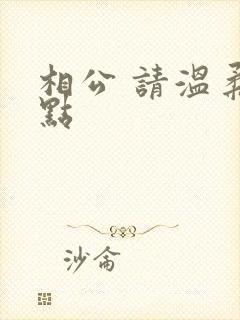 相公 請溫柔
點
沙侖